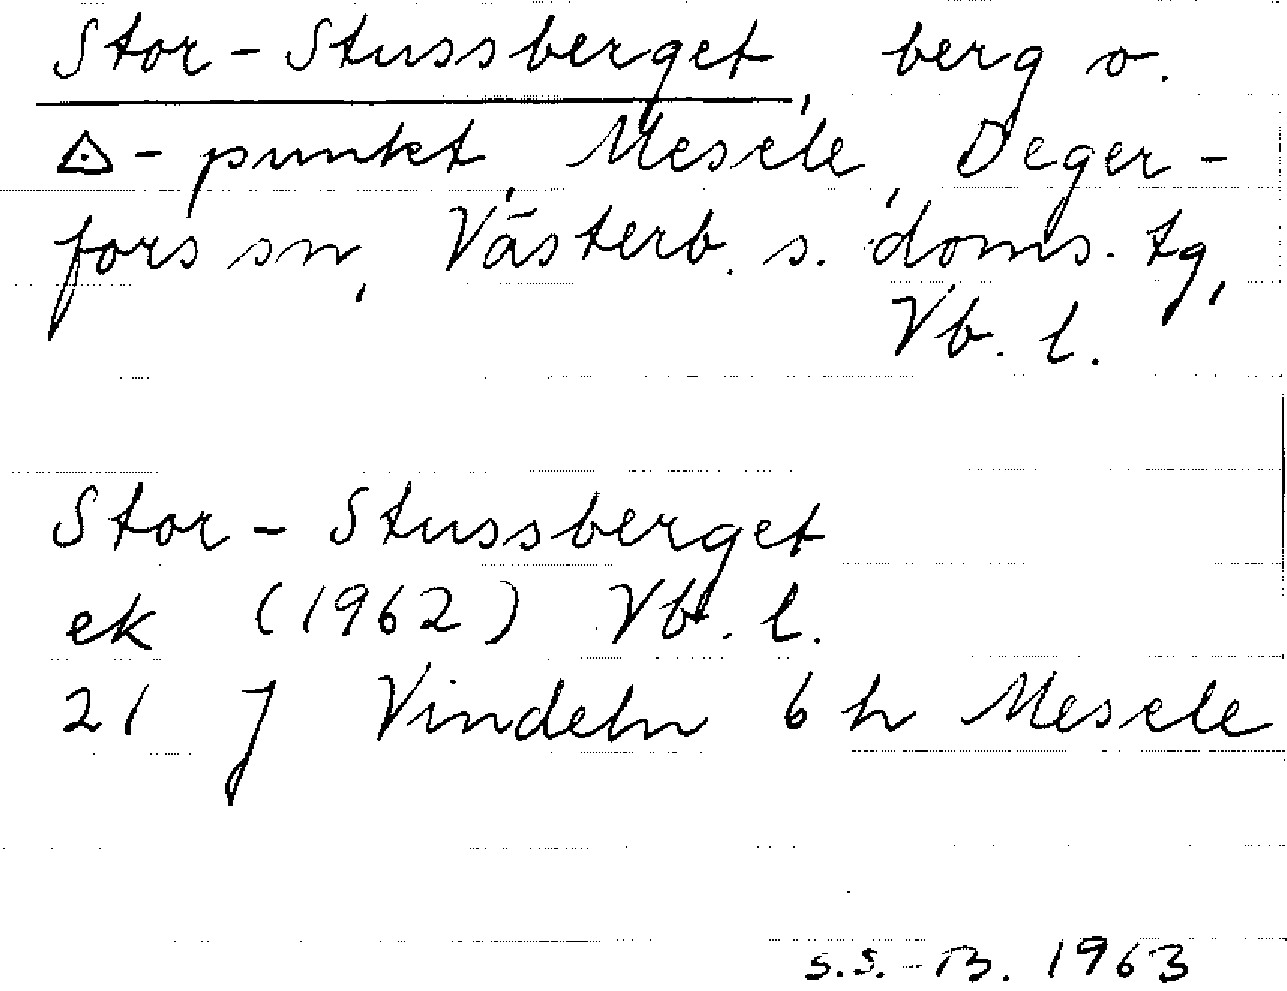 Stor-Stussberget, berg o.
△-punkt, Mesele, Deger-
fors sn, Västerb. s. doms. tg,
Vb. l.
Stor-Stussberget
ek (1962) Vb. l.
21 J Vindeln 6 h Mesele
S.S.-B. 1963